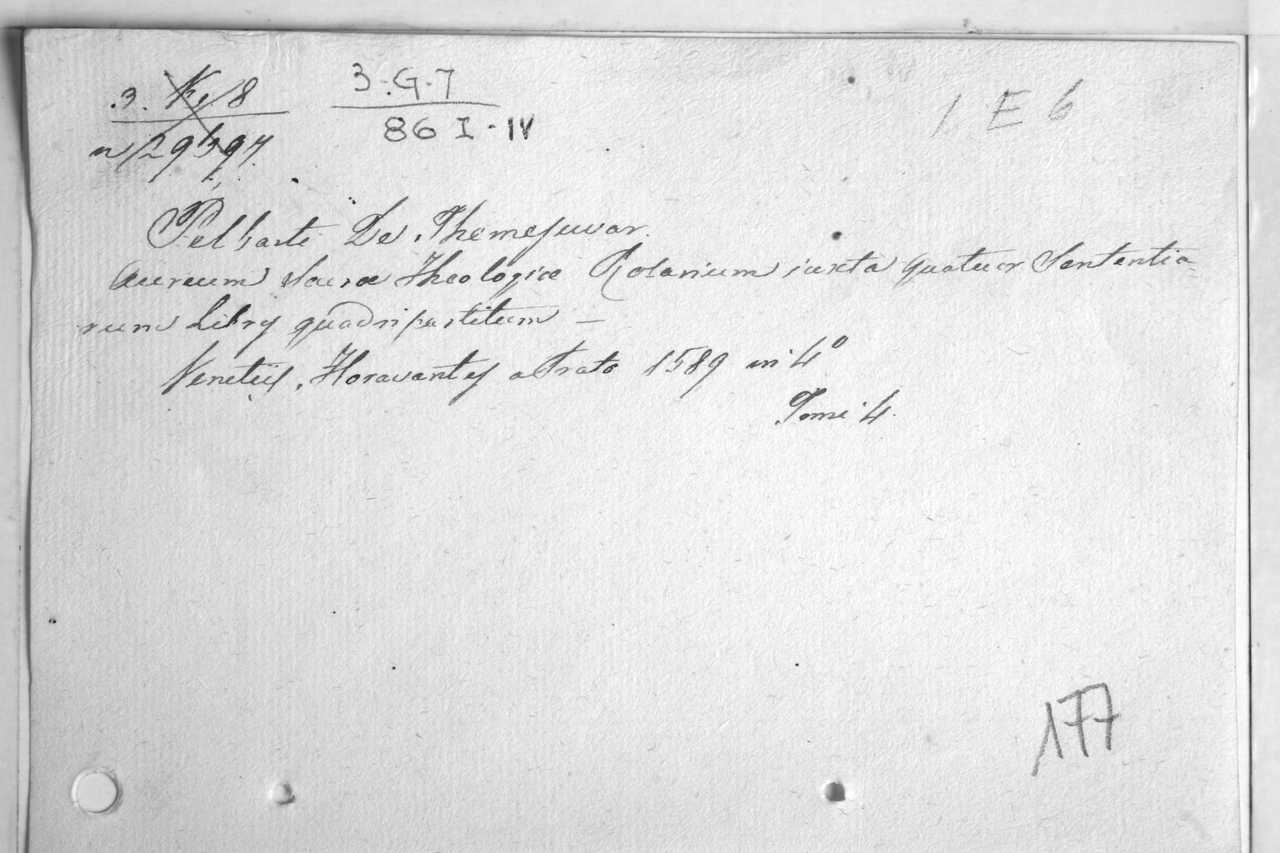 3. K 8
3.G.7
86 I-IV
1 E 6
Pelbarti De Themesuvar.
Aureum Sacrae Theologiae Rosarium iuxta quatuor Sententia-
rum Libros quadripartitum –
Venetiis, Floravantes a Prato 1589 in 4º
Tomi 4.
177